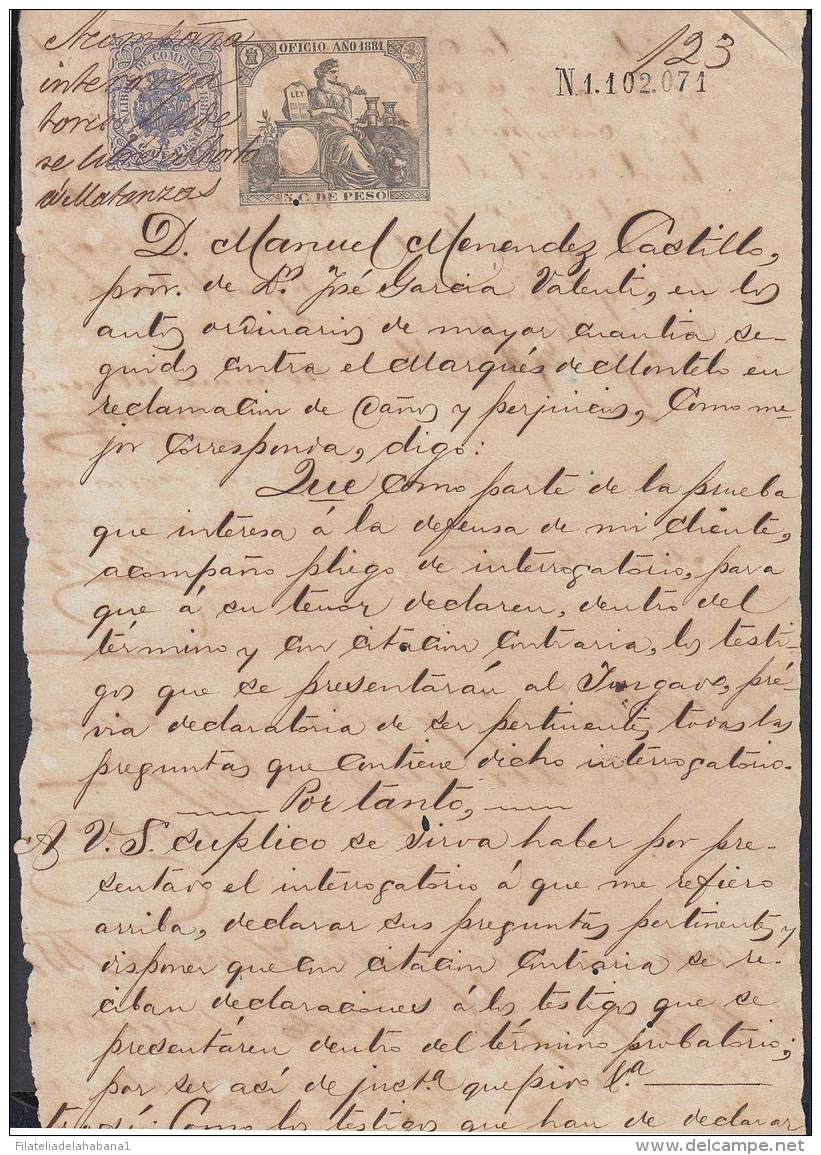 123
Acompaña
interroga
torio
se libre exhorto
á Matanzas
LIBROS DE COMERCIO
PESO
OFICIO AÑO 1881
LEY
5 C. DE PESO
N1.102.071
D. Manuel Menendez Castillo,
pror. de Dn. José Garcia Valenti, en los
autos ordinarios de mayor cuantia se-
guidos contra el Marqués de Montelo en
reclamacion de daños y perjuicios, como me-
jor corresponda, digo:
Que como parte de la prueba
que interesa á la defensa de mi cliente,
acompaño pliego de interrogatorio, para
que á su tenor declaren, dentro del
término y con citacion contraria, los testi-
gos que se presentarán al Juzgado, pré-
via declaratoria de ser pertinentes todas las
preguntas que contiene dicho interrogatorio.
Por tanto,
A V. S. suplico se sirva haber por pre-
sentado el interrogatorio á que me refiero
arriba, declarar sus preguntas pertinentes y
disponer que con citacion contraria se re-
ciban declaraciones á los testigos que se
presentáren dentro del término probatorio;
por ser así de justa. que pido &a
trosí: Como los testigos que han de declarar
Filateliadelahabana1
delcampe.net